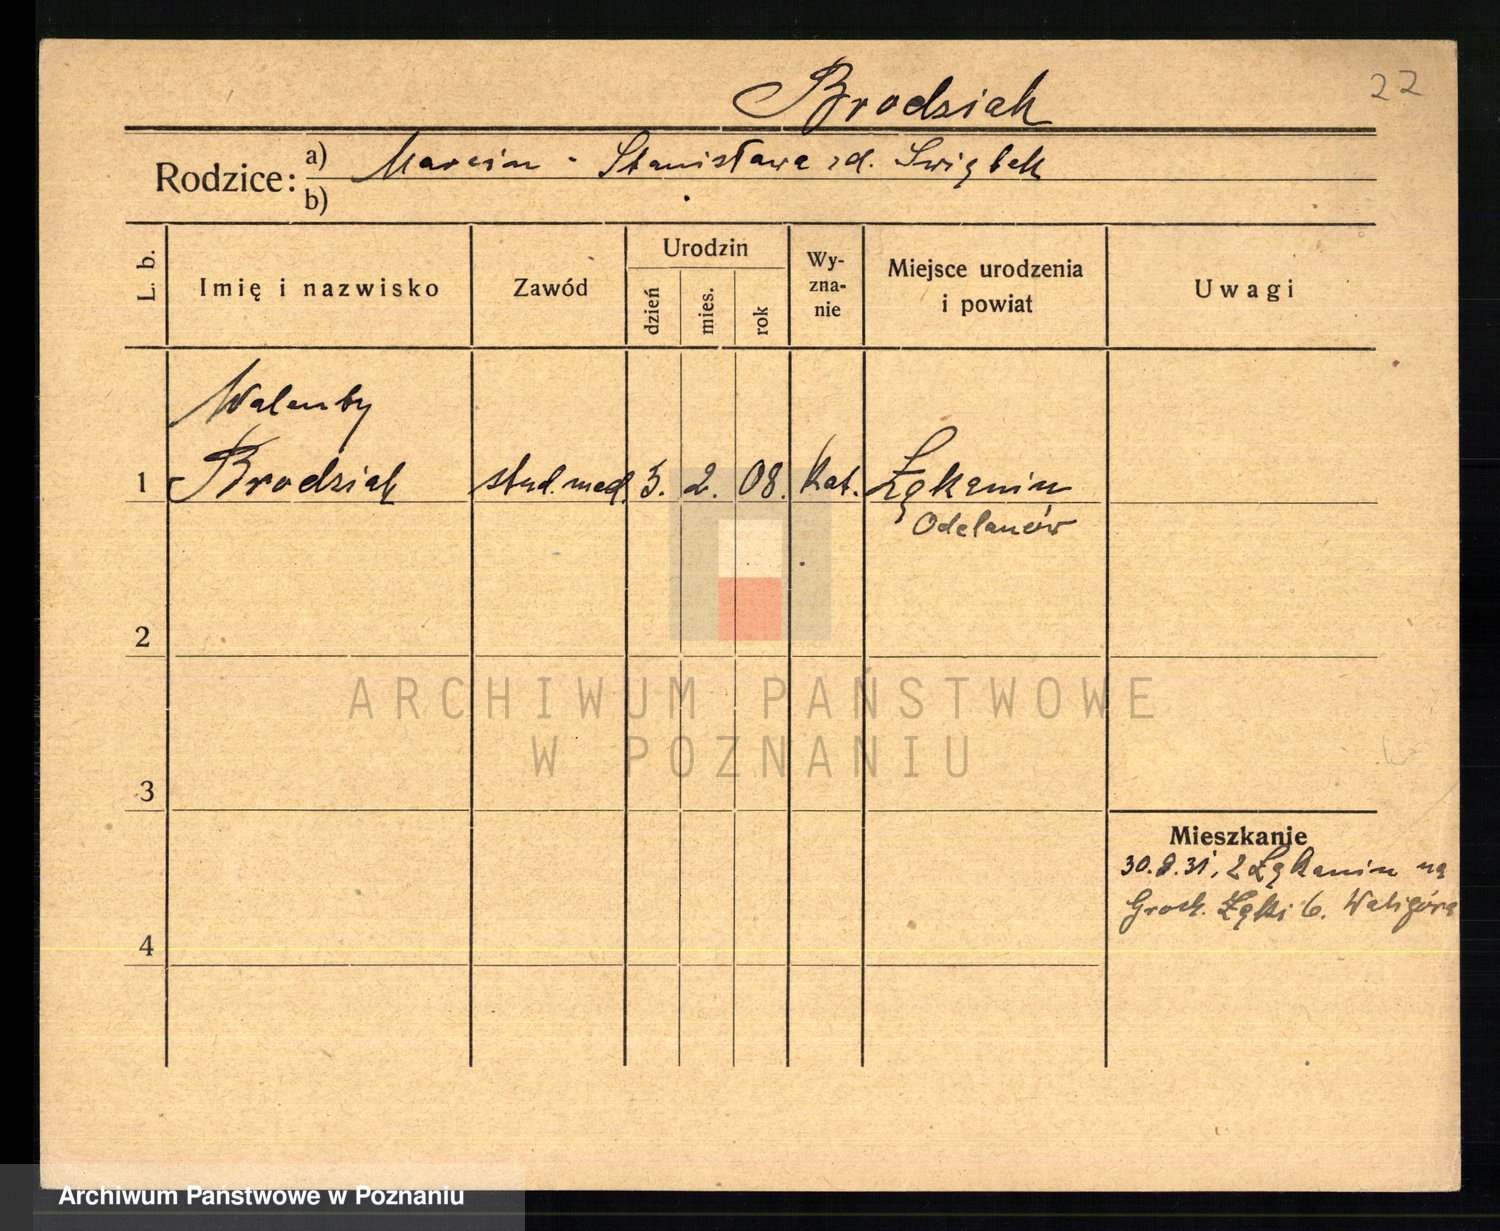 22
Brodziak
Rodzice:
a) Marcin - Stanisława zd. Świątek
b)
L. b.
Imię i nazwisko
Zawód
Urodzin
dzień
mies.
rok
Wy-
zna-
nie
Miejsce urodzenia
i powiat
Uwagi
Walenty
1 Brodziak stud. med. 5. 2. 08. kat. Łąkanin
Odolanów
2
ARCHIWUM PAŃSTWOWE
W POZNANIU
3
Mieszkanie
30.8.31, z Łąkanin na
Groch. Łąki 6. Waligóra
4
Archiwum Państwowe w Poznaniu